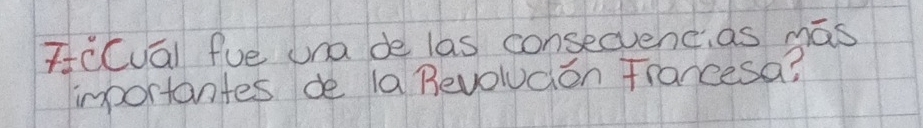 7-¿Cuál fue una de las consecuencias más
importantes de la Revolución Francesa?